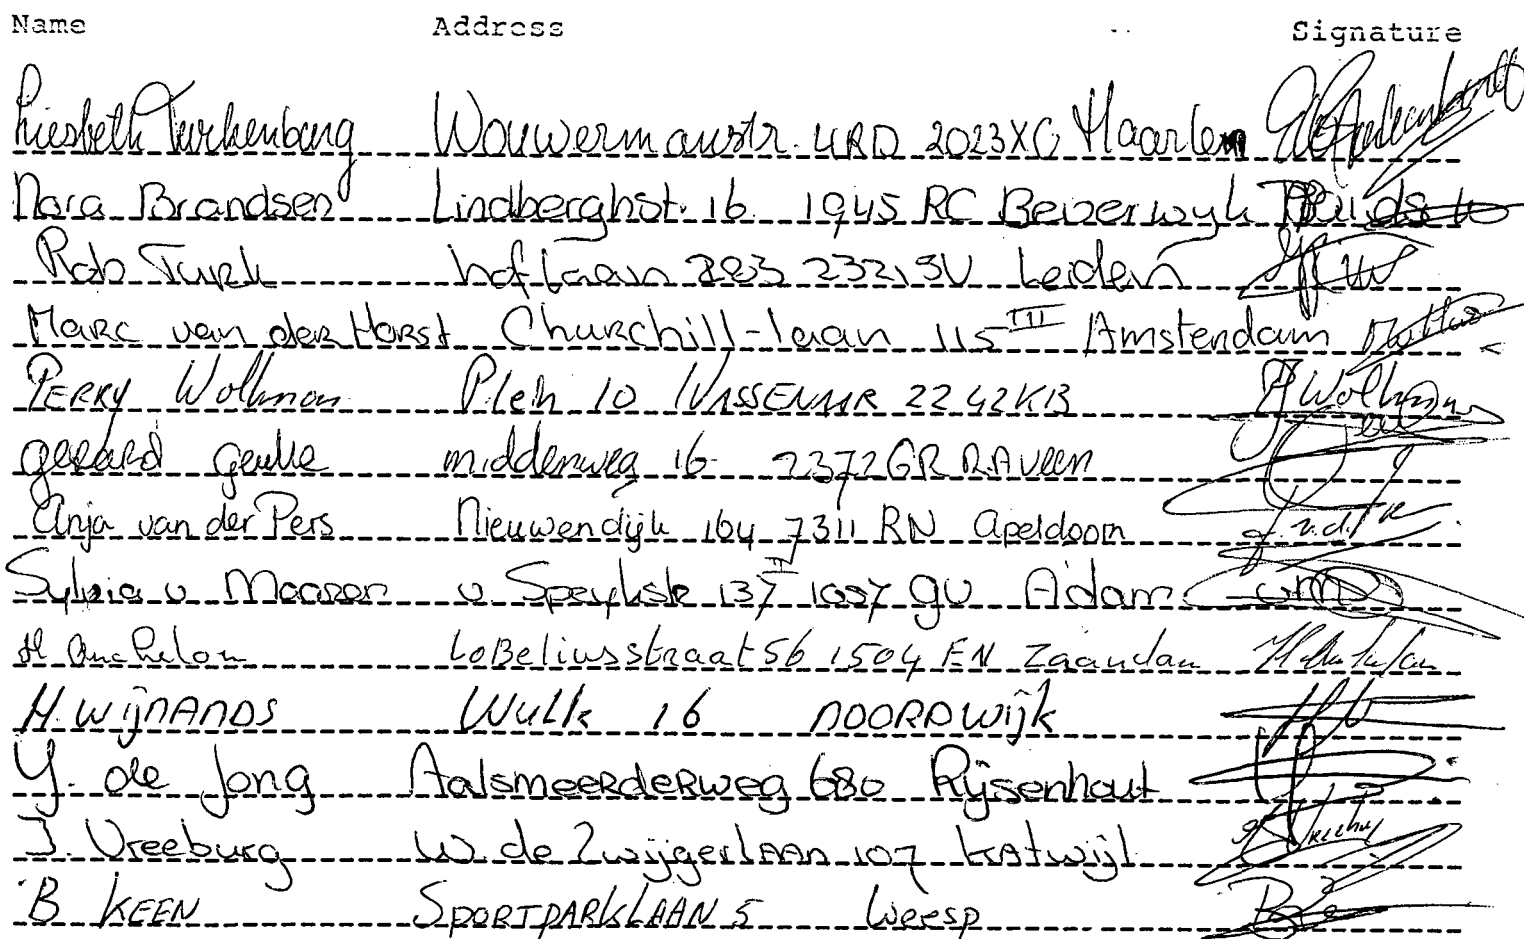 Name Address Signature
Liesbeth Turkenburg Wouwermanstr. 4RD 2023XC Haarlem
Nora Brandsen Lindberghst. 16 1945 RC Beverwyk
Rob Turk hoflaan 283 2321SV Leiden
Marc van der Horst Churchill-laan 115 III Amsterdam
Perry Wolkman Plein 10 WASSENAAR 2242KB P Wolkman
gerard middenweg 16 2372GR R.A Veen
Anja van der Pers Nieuwendijk 164 7311 RN Apeldoorn
Sylvia v Maaren v. Speykstr 137 II 1057 GV A'dam
H Lobeliusstraat 56 1504 EN Zaandam
H. WIJNANDS Wulk 16 NOORDWIJK
Y. de Jong Aalsmeerderweg 680 Rijsenhout
J. Vreeburg W. de Zwijgerlaan 107 Katwijk
B KEEN SPORTPARKLAAN 5 Weesp